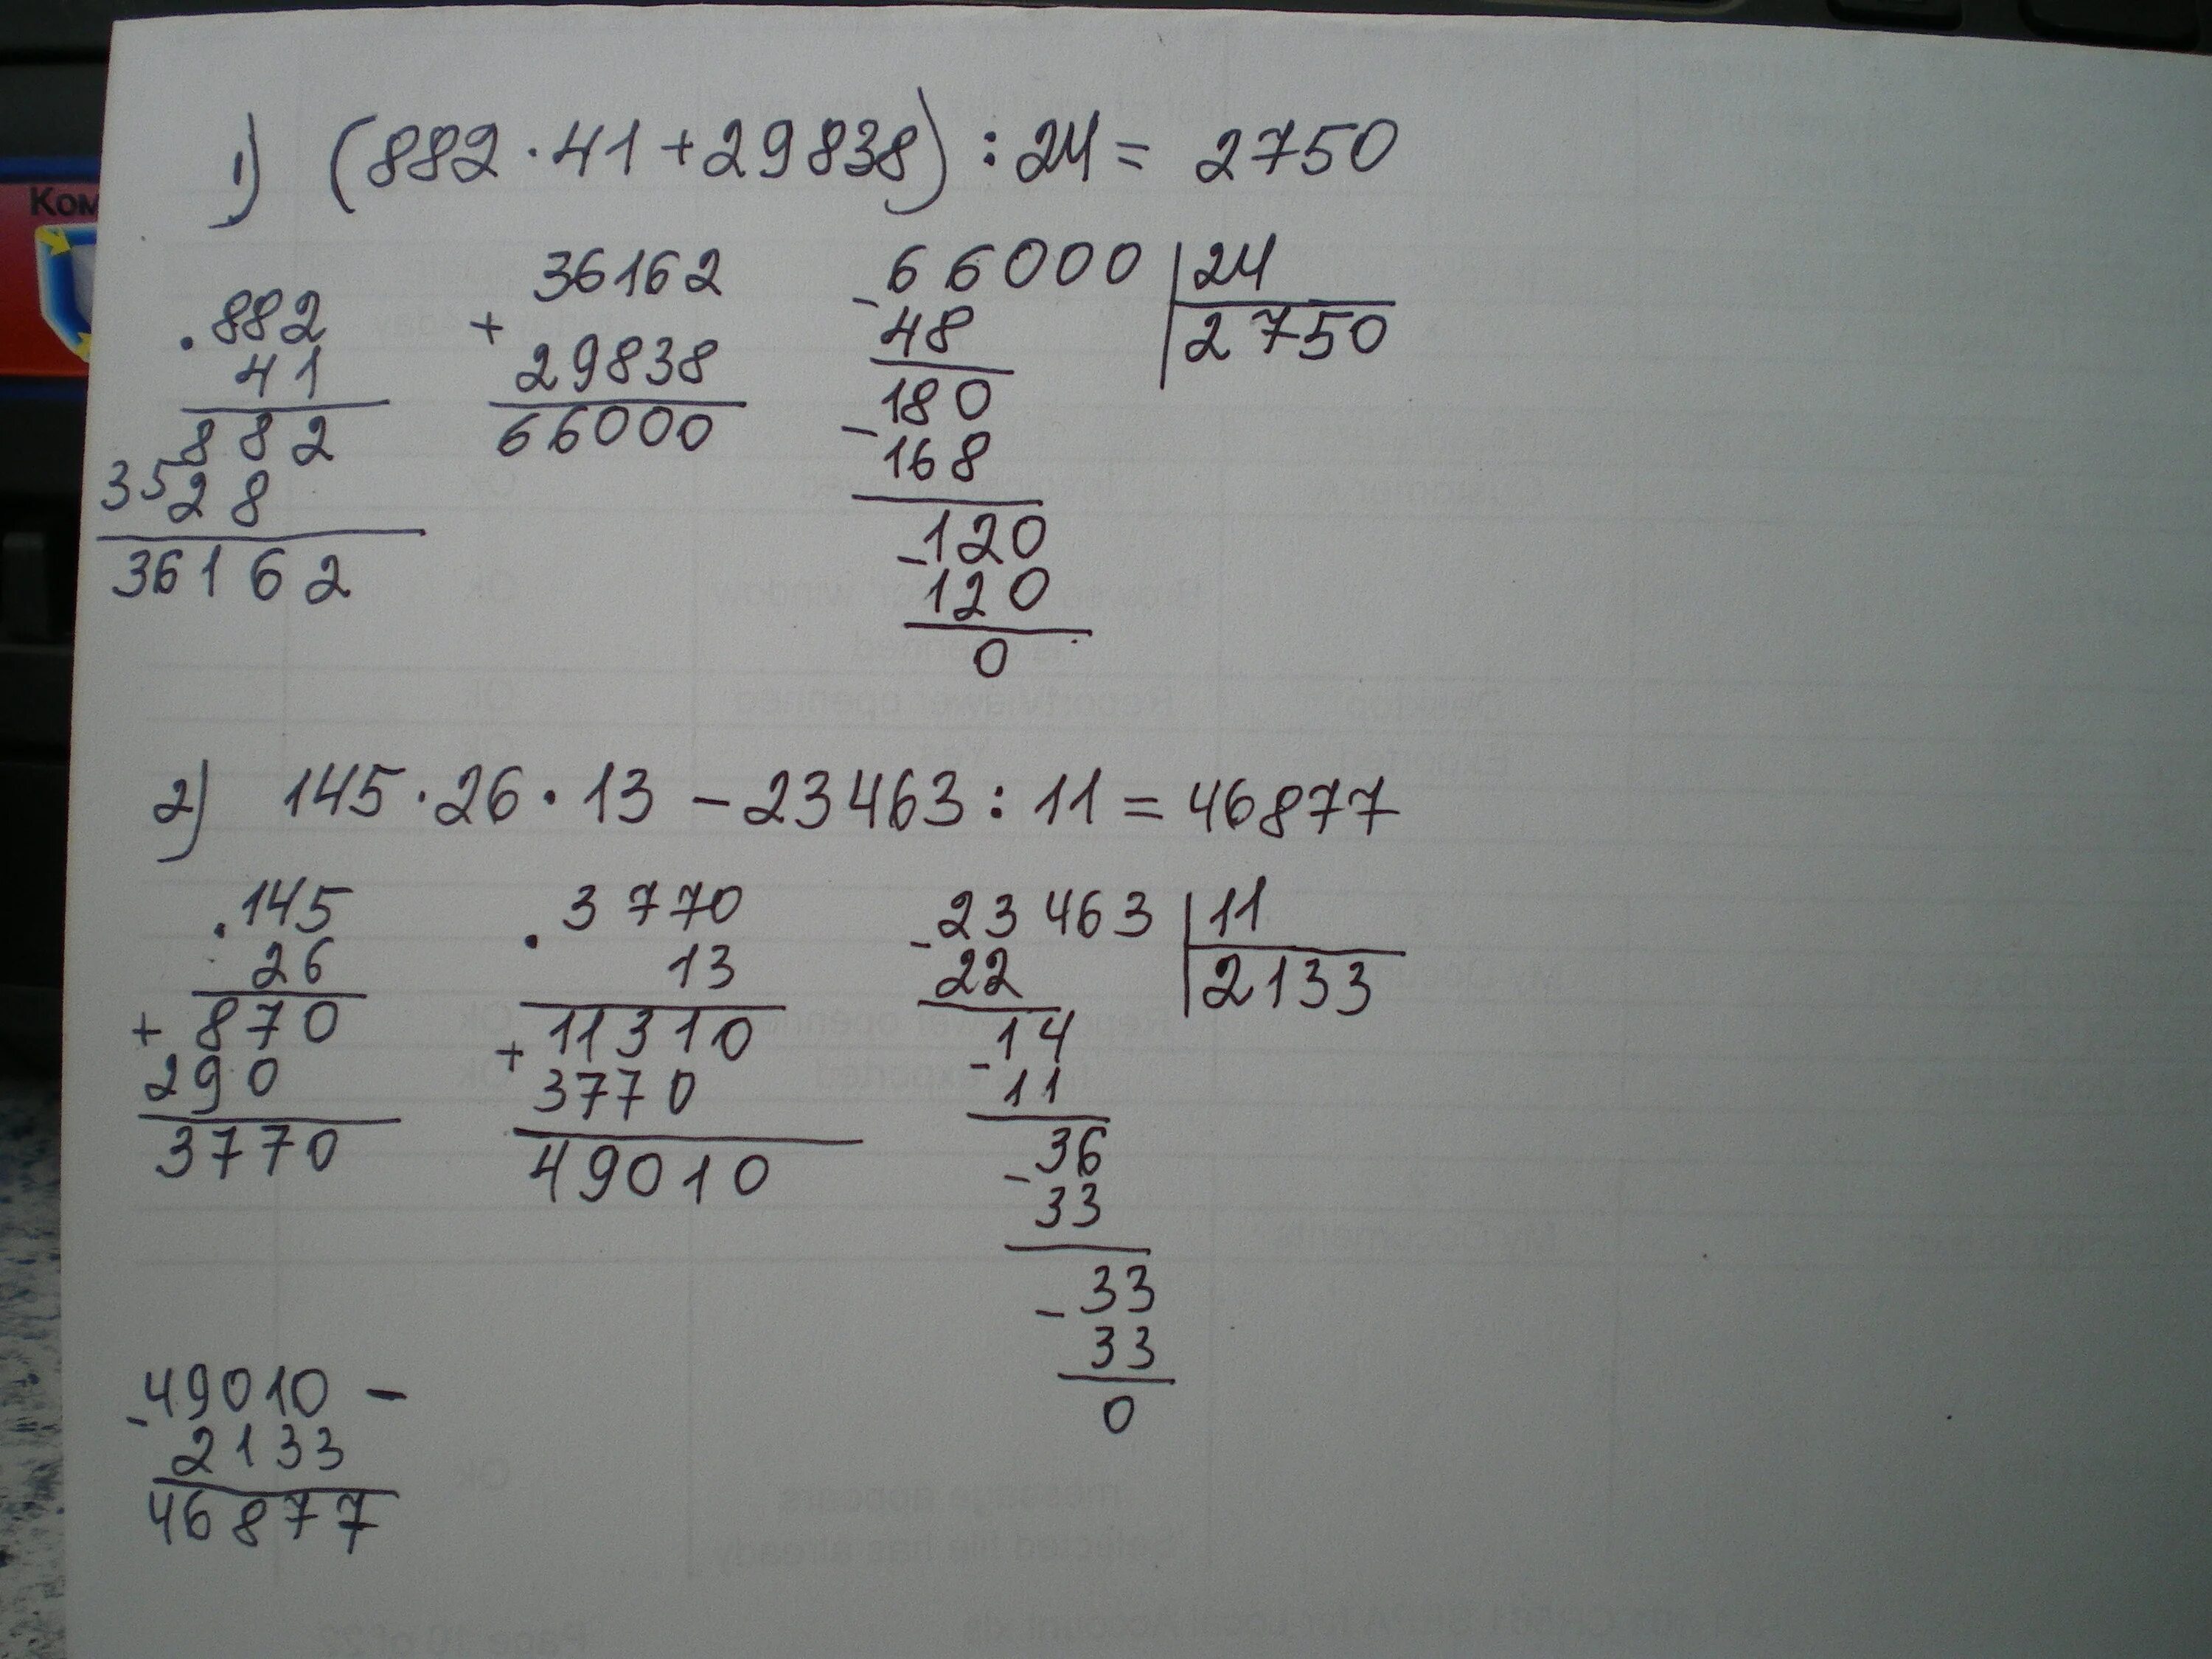 1) (882 · 41 + 29838) : 24 = 2750
· 882
41
882
3528
36162
36162
+
29838
66000
- 66000 | 24
48 2750
180
- 168
- 120
120
0
2) 145 · 26 · 13 - 23463 : 11 = 46877
· 145
26
+ 870
290
3770
3770
· 13
11310
+ 3770
49010
- 23463 | 11
22 2133
- 14
11
- 36
33
- 33
33
0
- 49010 -
2133
46877
Ком